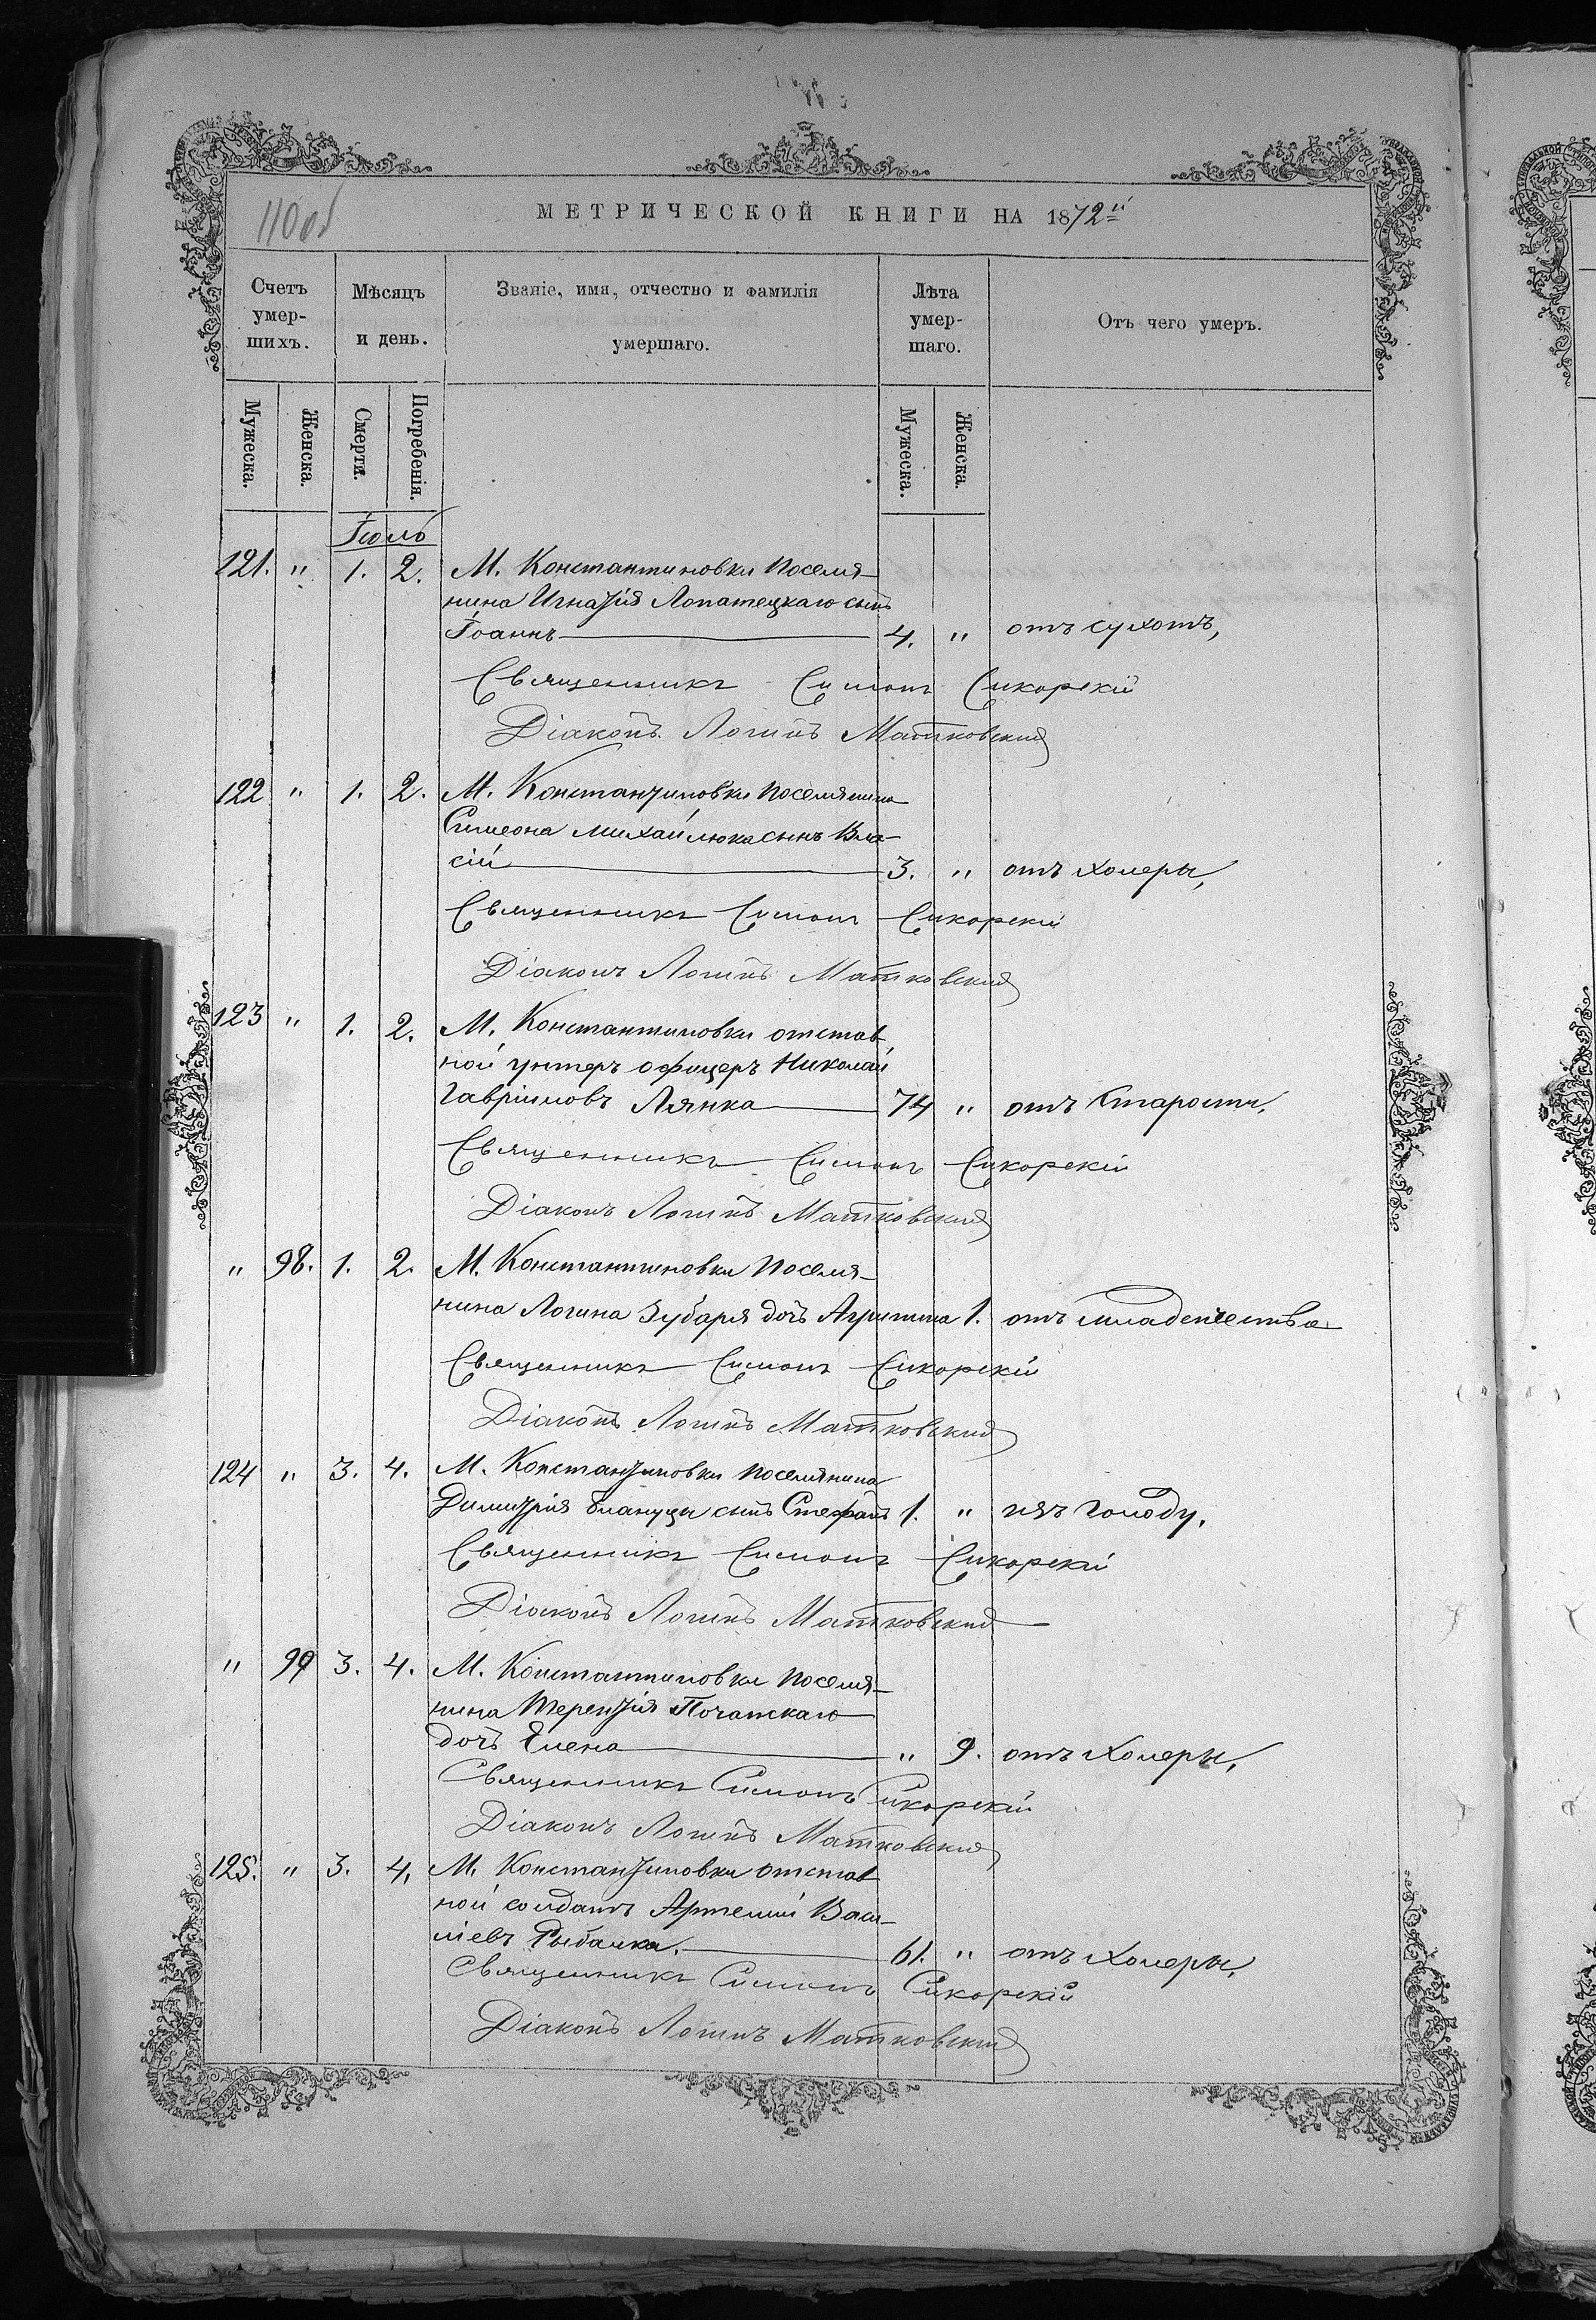 110 об
МЕТРИЧЕСКОЙ КНИГИ НА 1872й
Счетъ умер-шихъ.
Мѣсяцъ и день.
Званіе, имя, отчество и фамилія умершаго.
Лѣта умер-шаго.
Отъ чего умеръ.
Мужеска. Женска. Смерти. Погребенія. Мужеска. Женска.
Іюль
121. " 1. 2. М. Константиновки поселя-
нина Игнатія Лопатецкаго сынъ
Іоаннъ 4. " отъ сухотъ,
Священникъ Симонъ Сикорскій
Діаконъ Логинъ Матковскій
122 " 1. 2. М. Константиновки поселянина
Симеона Михайлюка сынъ Вла-
сій 3. " отъ холеры,
Священникъ Симонъ Сикорскій
Діаконъ Логинъ Матковскій
123 " 1. 2. М. Константиновки отстав
ной унтеръ офицеръ Николай
Гавріиловъ Лянка 74 " отъ старости,
Священникъ Симонъ Сикорскій
Діаконъ Логинъ Матковскій
" 98. 1. 2. М. Константиновки поселя-
нина Логина Зубаря дочь Агрипина 1. отъ младенчества
Священникъ Симонъ Сикорскій
Діаконъ Логинъ Матковскій
124 " 3. 4. М. Константиновки поселянина
Димитрія Блануцы сынъ Стефанъ 1. " изъ голоду.
Священникъ Симонъ Сикорскій
Діаконъ Логинъ Матковскій
" 99 3. 4. М. Константиновки поселя-
нина Терентія Почапскаго
дочь Елена " 9. отъ холеры,
Священникъ Симонъ Сикорскій
Діаконъ Логинъ Матковскій
125. " 3. 4. М. Константиновки отстав
ной солдатъ Артемій Васи-
ліевъ Рыбалка. 61. " отъ холеры,
Священникъ Симонъ Сикорскій
Діаконъ Логинъ Матковскій